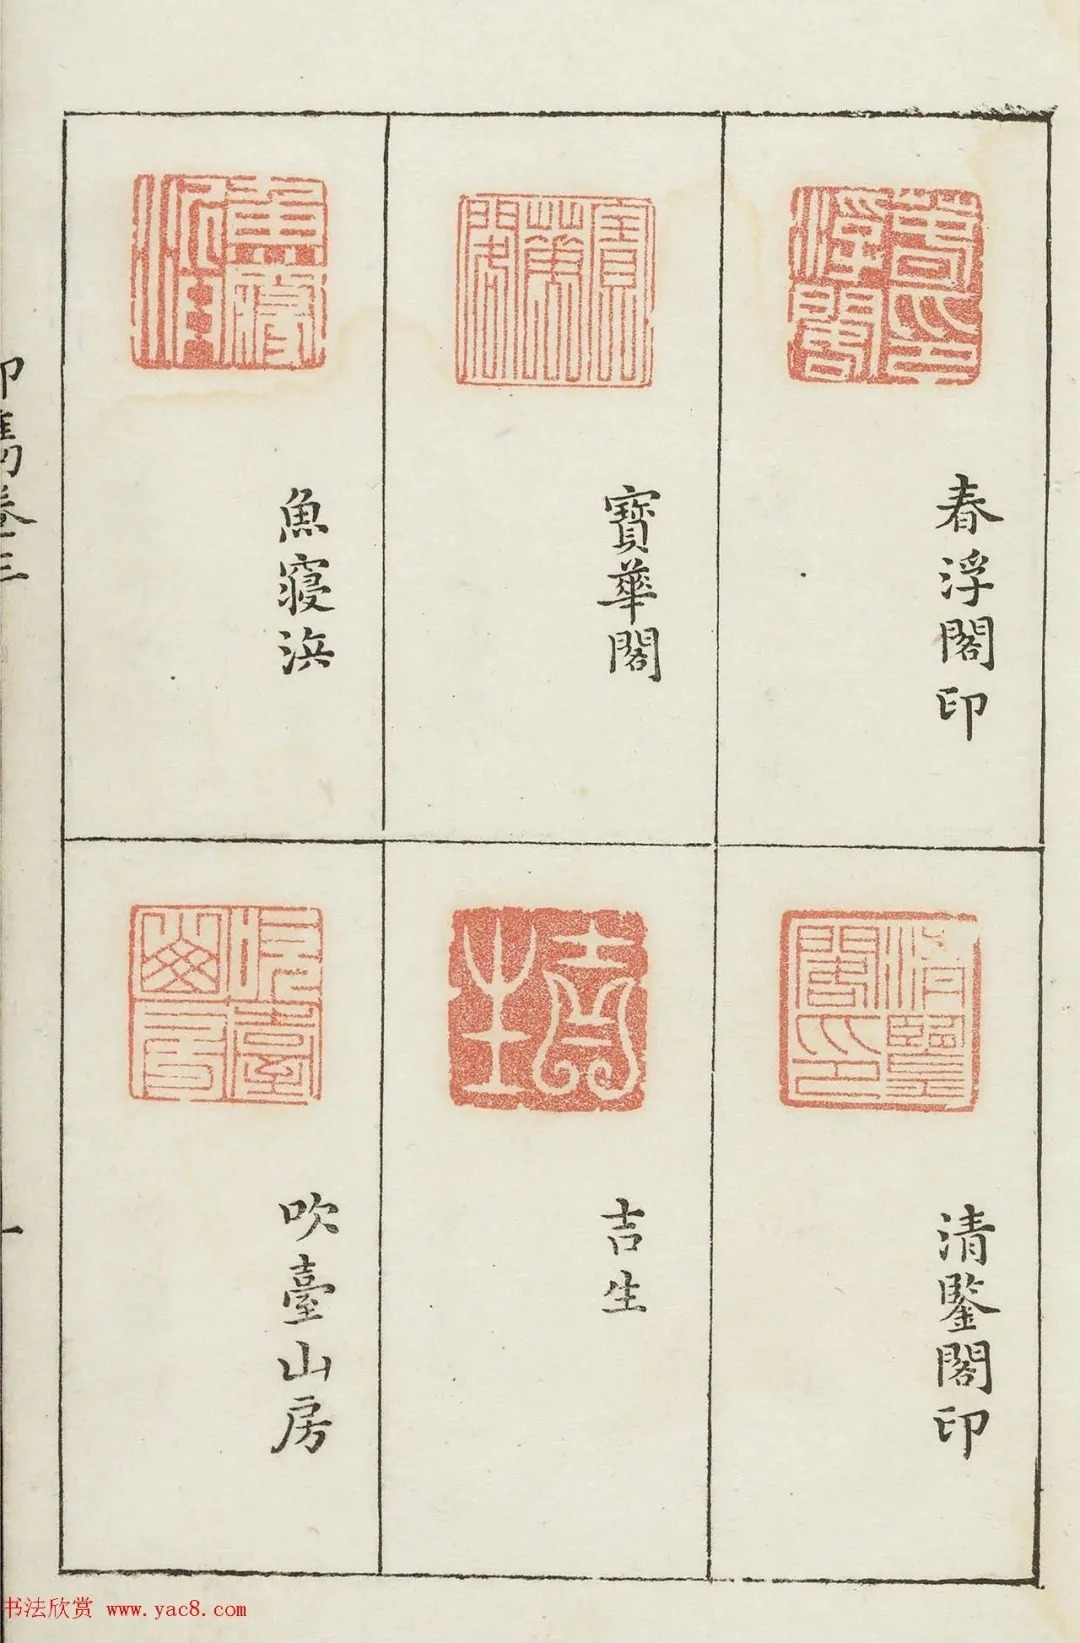 春浮閣印
寶華閣
魚寢浜
清鑒閣印
吉生
吹臺山房
印雋卷三
一
书法欣赏 www.yac8.com